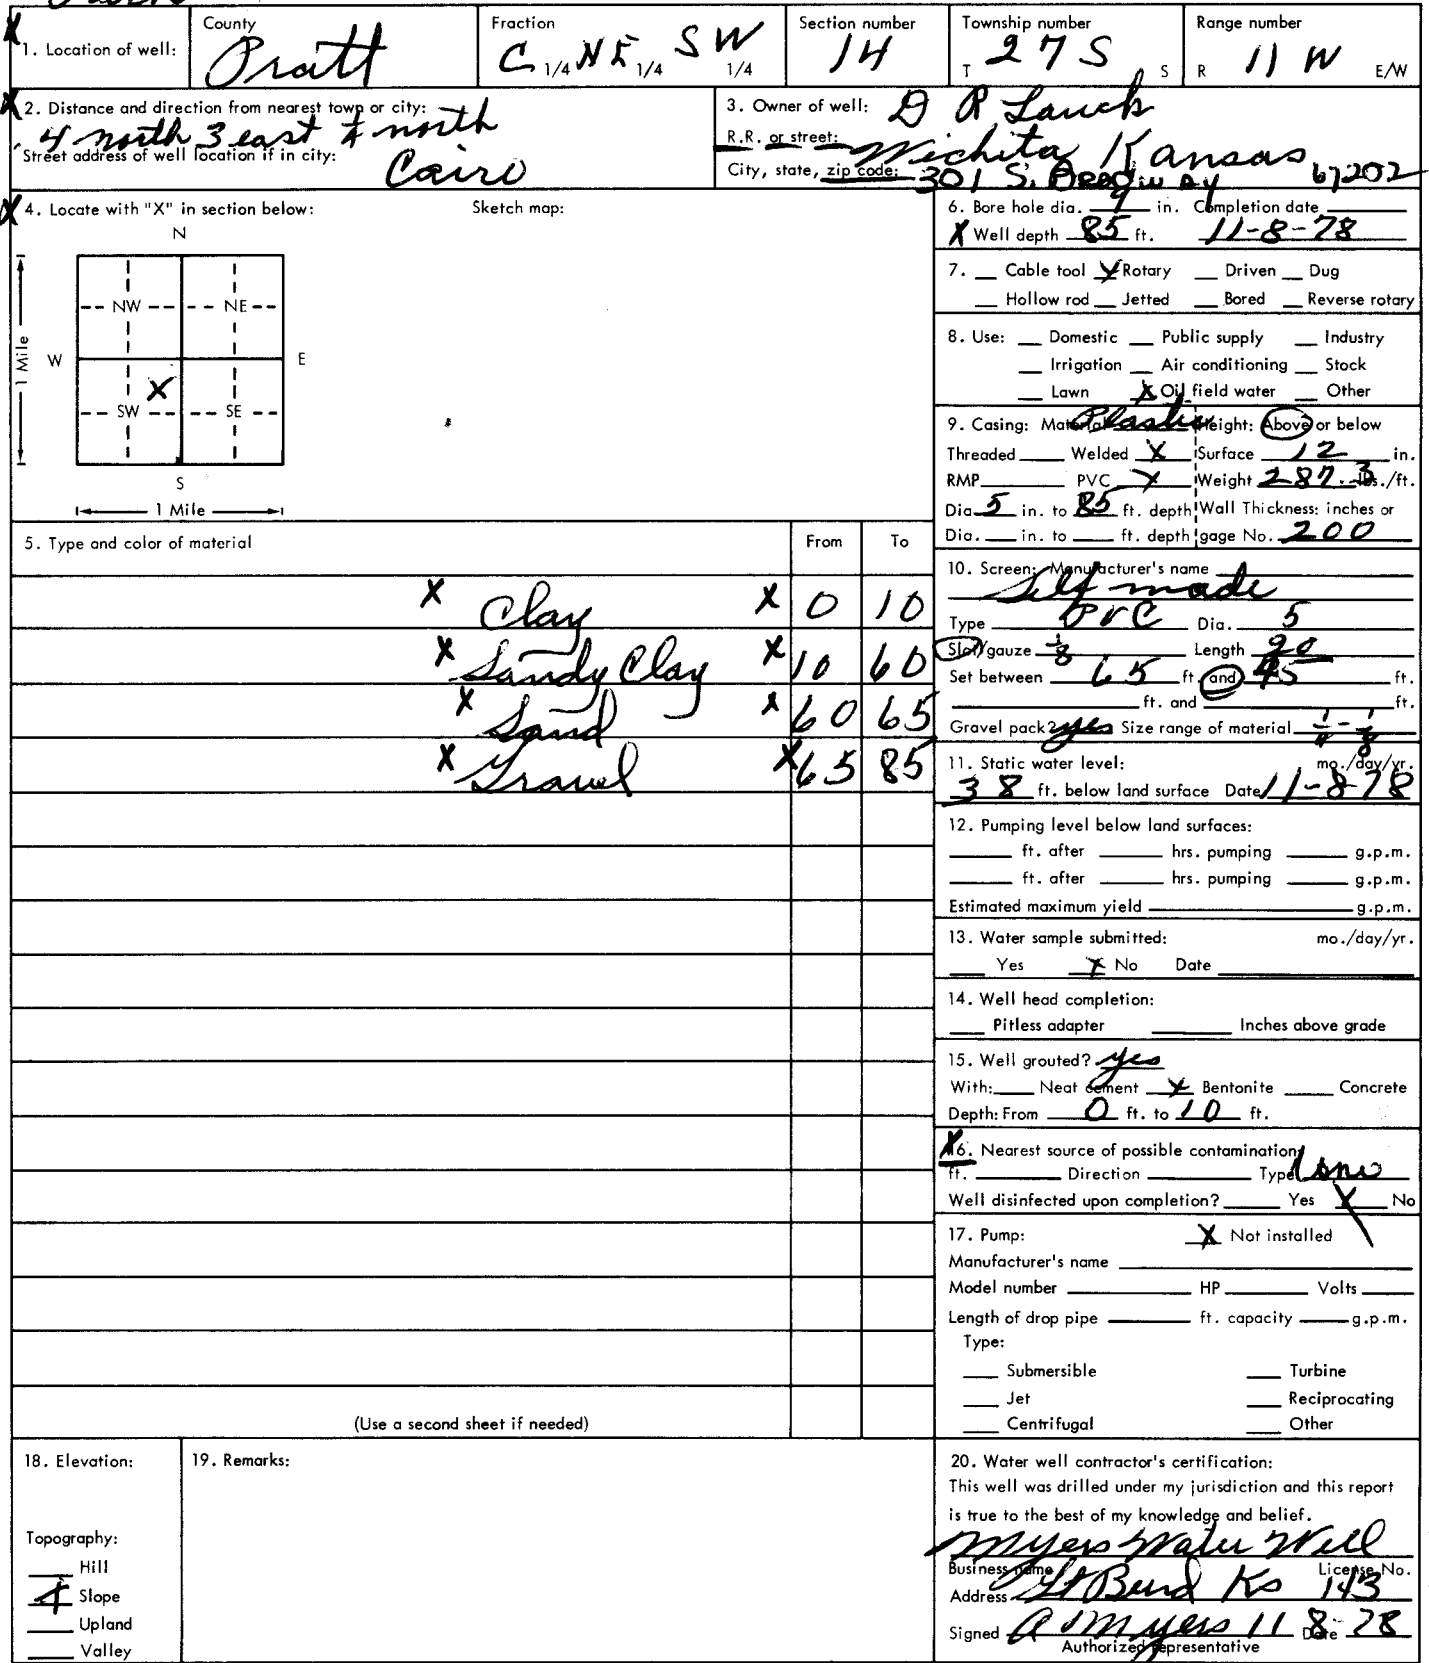 1. Location of well: County Pratt Fraction C 1/4 NE 1/4 SW 1/4 Section number 14 Township number T 27 S S Range number R 11 W E/W
2. Distance and direction from nearest town or city: 4 north 3 east 1/4 north
Street address of well location if in city: Cairo
3. Owner of well: D R Lauck
R.R. or street: Wichita Kansas
City, state, zip code: 301 S. Broadway 67202
X 4. Locate with "X" in section below: Sketch map:
N
NW NE
W E
X
SW SE
S
1 Mile
1 Mile
5. Type and color of material From To
X Clay X 0 10
X Sandy Clay X 10 60
X Sand X 60 65
X Gravel X 65 85
(Use a second sheet if needed)
6. Bore hole dia. 9 in. Completion date
X Well depth 85 ft. 11-8-78
7. Cable tool X Rotary Driven Dug
Hollow rod Jetted Bored Reverse rotary
8. Use: Domestic Public supply Industry
Irrigation Air conditioning Stock
Lawn X Oil field water Other
9. Casing: Material Plastic Height: Above or below
Threaded Welded X Surface 12 in.
RMP PVC X Weight 287.3 lbs./ft.
Dia. 5 in. to 85 ft. depth Wall Thickness: inches or
Dia. in. to ft. depth gage No. 200
10. Screen: Manufacturer's name
Self made
Type PVC Dia. 5
Slot/gauze 1/8 Length 20
Set between 65 ft. and ft.
ft. and ft.
Gravel pack? yes Size range of material 1/4 - 1/8
11. Static water level: mo./day/yr.
38 ft. below land surface Date 11-8-78
12. Pumping level below land surfaces:
ft. after hrs. pumping g.p.m.
ft. after hrs. pumping g.p.m.
Estimated maximum yield g.p.m.
13. Water sample submitted: mo./day/yr.
Yes X No Date
14. Well head completion:
Pitless adapter Inches above grade
15. Well grouted? yes
With: Neat cement X Bentonite Concrete
Depth: From 0 ft. to 10 ft.
X 16. Nearest source of possible contamination:
ft. Direction Type
Well disinfected upon completion? Yes X No
17. Pump: X Not installed
Manufacturer's name
Model number HP Volts
Length of drop pipe ft. capacity g.p.m.
Type:
Submersible Turbine
Jet Reciprocating
Centrifugal Other
18. Elevation:
Topography:
Hill
Slope
Upland
Valley
19. Remarks:
20. Water well contractor's certification:
This well was drilled under my jurisdiction and this report
is true to the best of my knowledge and belief.
Myers Water Well
Business name License No.
Address Gt Bend Ks 143
Signed A Myers 11 8-78 Date
Authorized representative